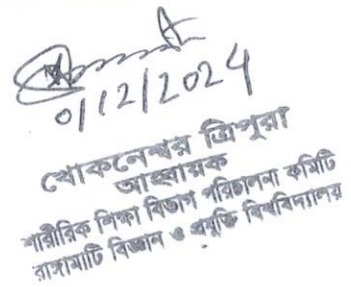 0/12/2024
খোকনেশ্বর ত্রিপুরা
আহ্বায়ক
শারীরিক শিক্ষা বিভাগ পরিচালনা কমিটি
রাঙ্গামাটি বিজ্ঞান ও প্রযুক্তি বিশ্ববিদ্যালয়